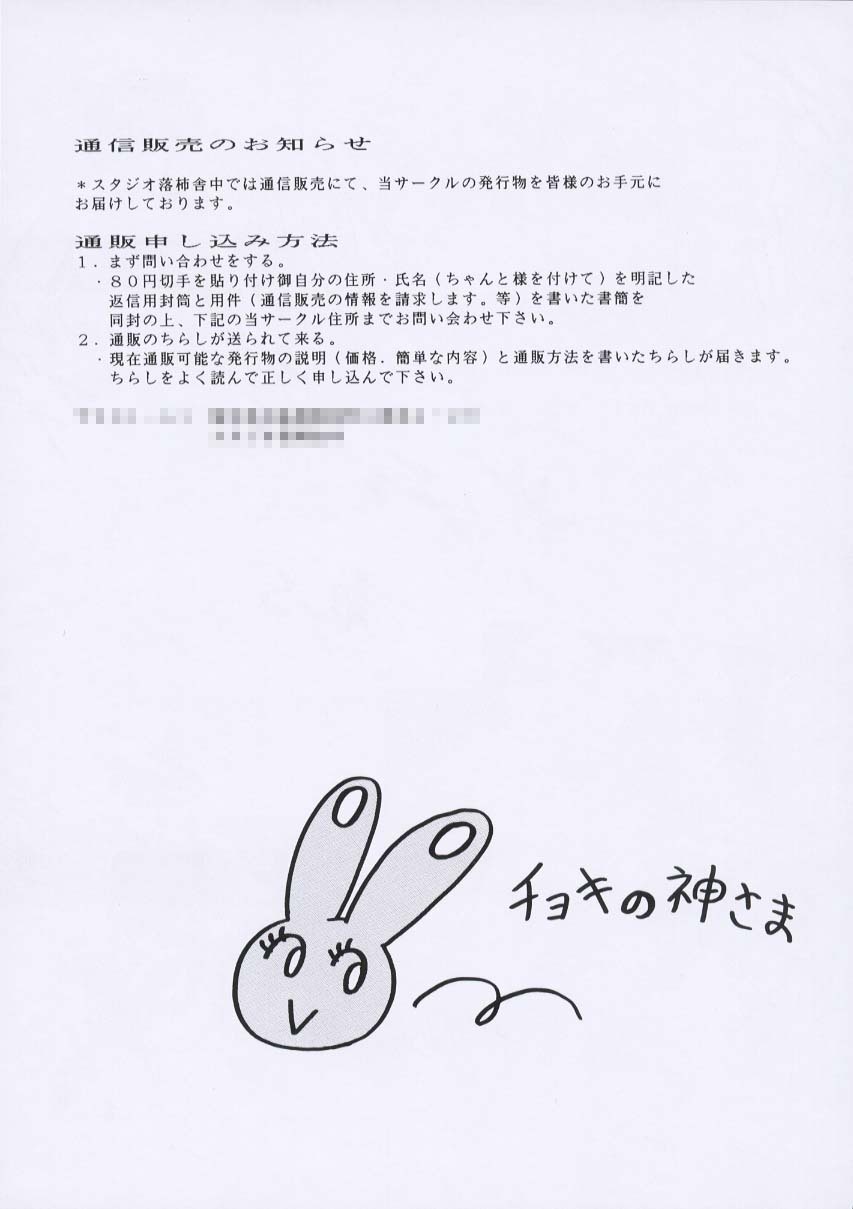 通信販売のお知らせ
＊スタジオ落柿舎中では通信販売にて、当サークルの発行物を皆様のお手元に
お届けしております。
通販申し込み方法
１．まず問い合わせをする。
・８０円切手を貼り付け御自分の住所・氏名（ちゃんと様を付けて）を明記した
返信用封筒と用件（通信販売の情報を請求します。等）を書いた書簡を
同封の上、下記の当サークル住所までお問い会わせ下さい。
２．通販のちらしが送られて来る。
・現在通販可能な発行物の説明（価格．簡単な内容）と通販方法を書いたちらしが届きます。
ちらしをよく読んで正しく申し込んで下さい。
チョキの神さま